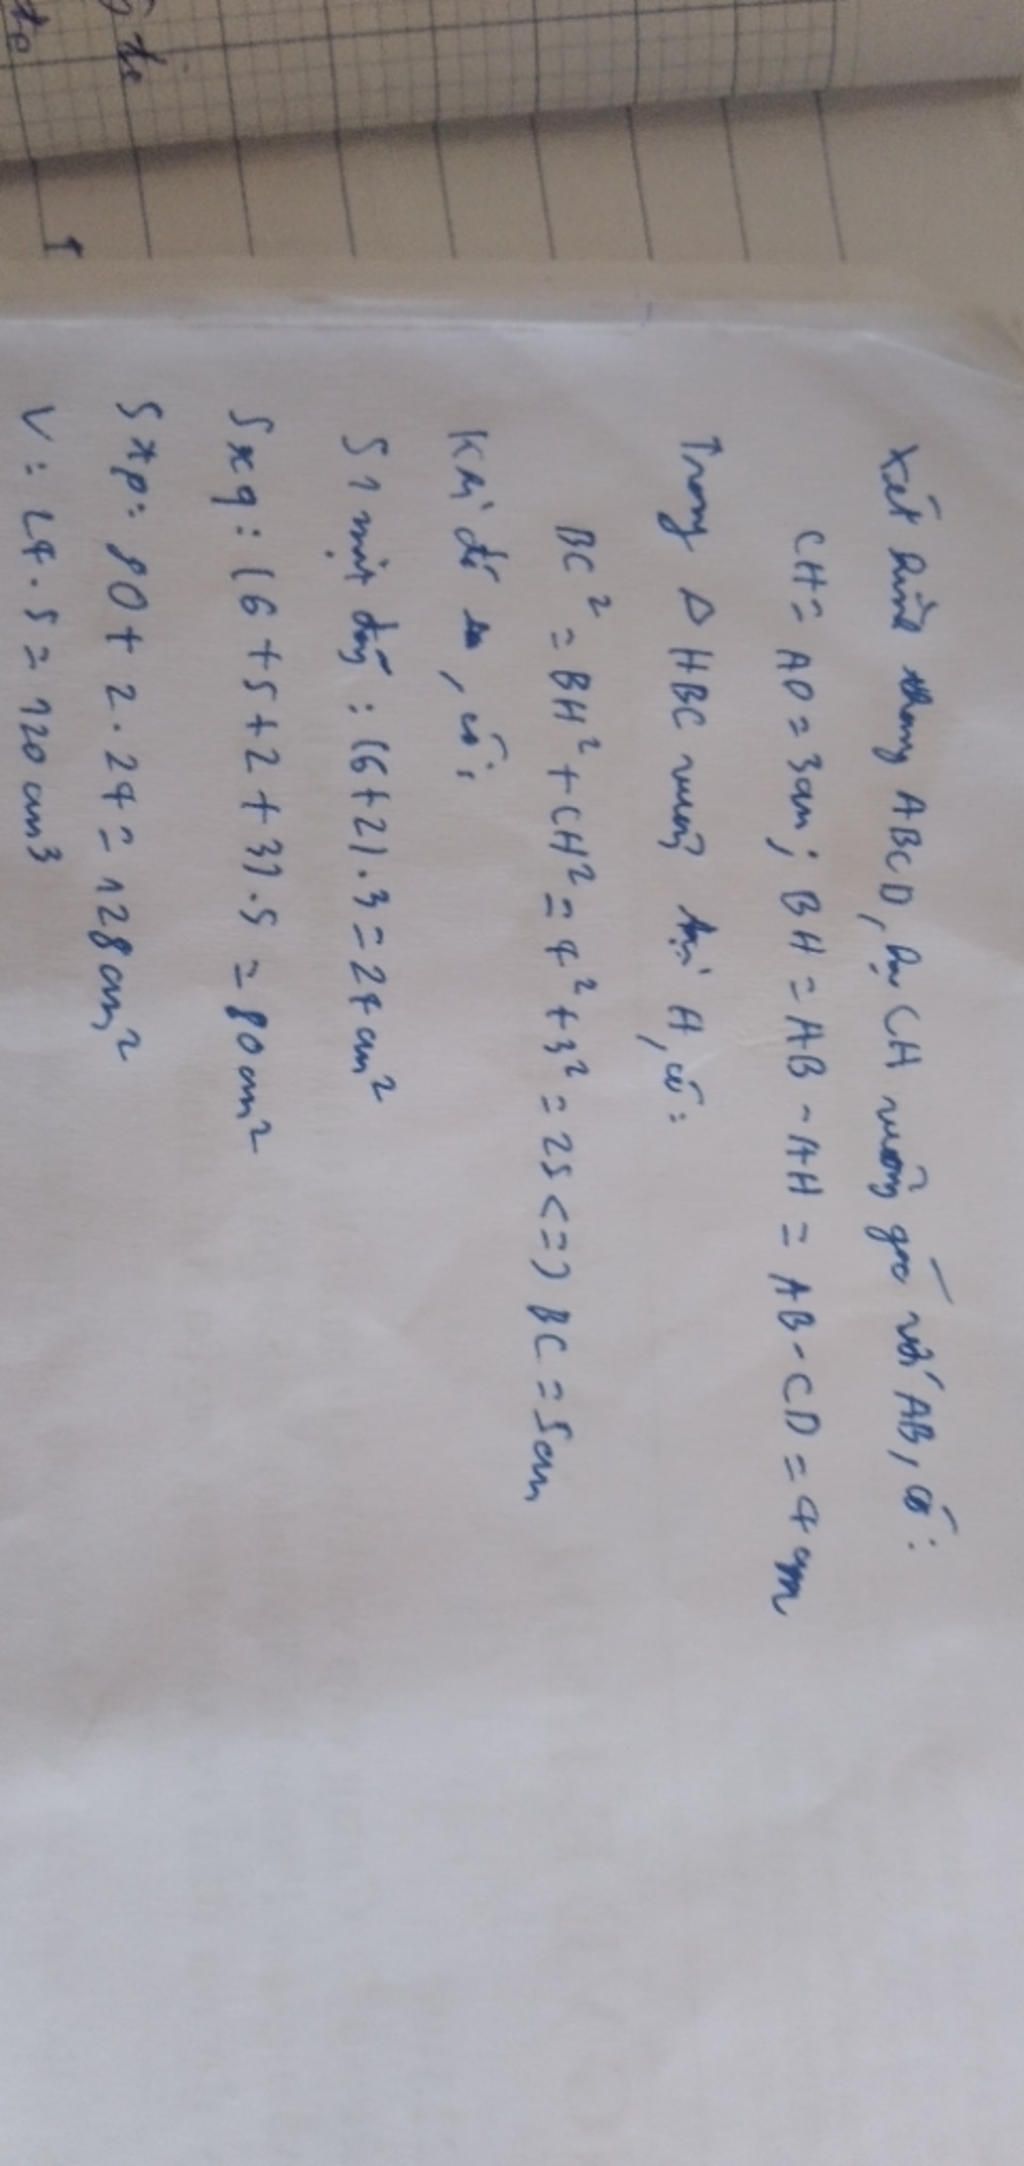 Xét hình thang ABCD, hạ CH vuông góc với AB, có:
CH = AD = 3cm; BH = AB - AH = AB - CD = 4cm
Trong Δ HBC vuông tại H, có:
BC² = BH² + CH² = 4² + 3² = 25 <=> BC = 5cm
Khi đó, có:
S 1 mặt đáy: (6+2).3 = 24cm²
Sxq: (6+5+2+3).5 = 80cm²
Stp: 80 + 2.24 = 128cm²
V: 24.5 = 120cm³